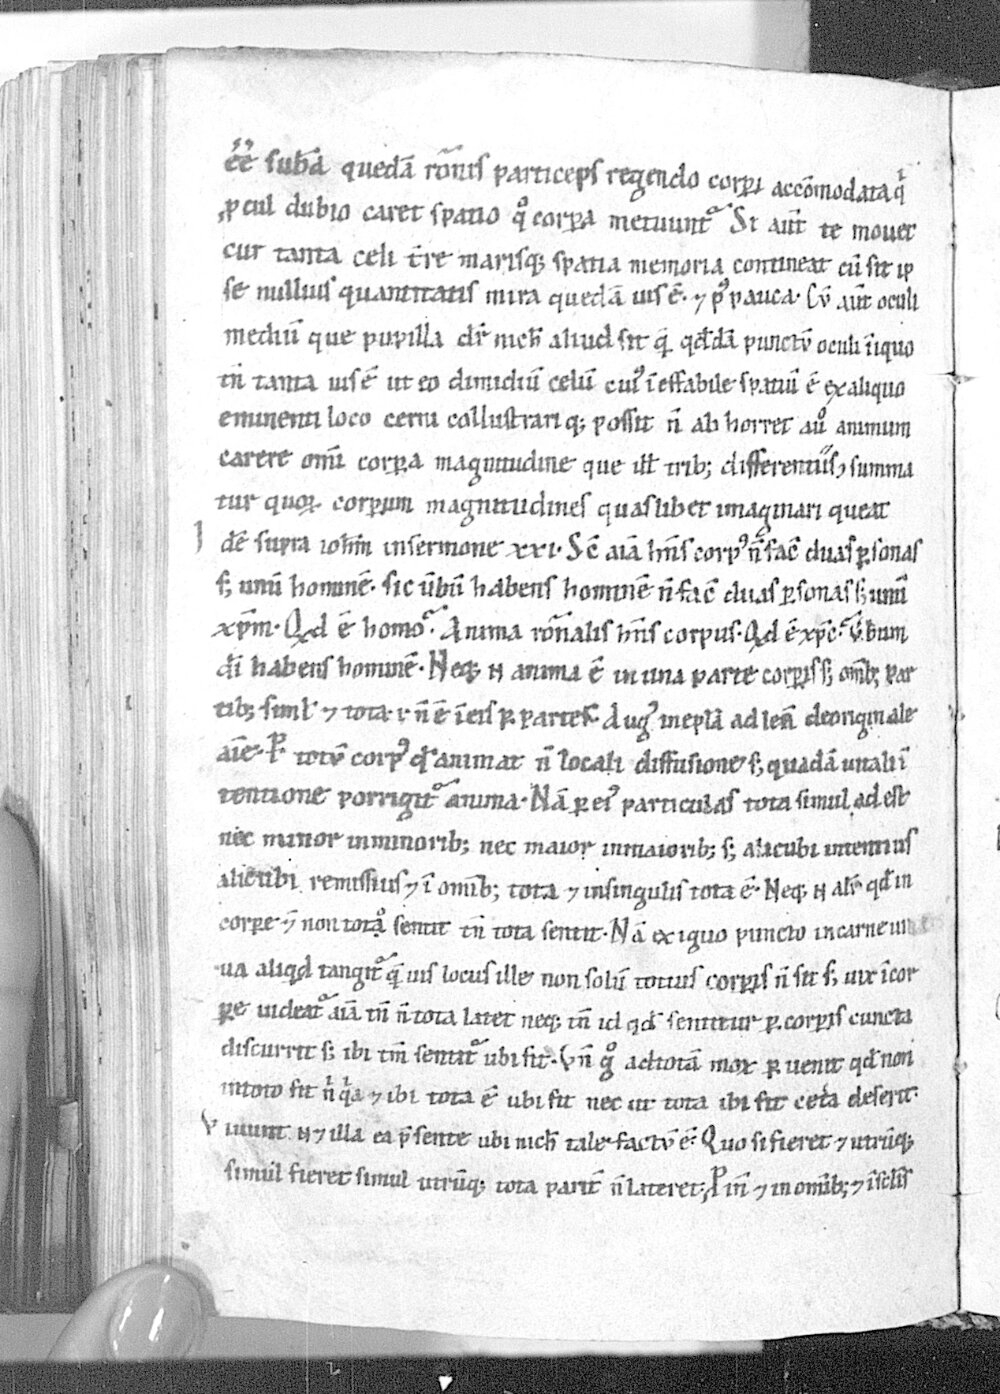 e͞e͞ subst̄a quedā rōnis particeps regendo corpori accōmodata q͛
ꝓcul dubio caret spatio qͦ corpora metiunt᷑ Si aut̄ te mouet
cur tanta celi t̄re marisq; spatia memoria contineat cū sit ip
se nullius quantitatis mira quedā uis ē· ⁊ ꝑ pauca· Cū aut̄ oculi
mediū que pupilla dr̄ nich̄ aliud sit qͣ qd̄dā punctū oculi ī quo
tn̄ tanta uis ē ut eo dimidiū celū cui᷒ īeffabile spatiū ē ex aliquo
eminenti loco cerni collustrariq; possit n̄ abhorret auͦ animum
carere om̄i corpora magnitudine que ill̄ trib; differentiis summa
tur quoꝝ corporum magnitudines quaslibet imaginari queat
I dē supra ioh̄m in sermone xxi· Sc̄ aīa hōis corp᷒ n̄ fac̄ duas ꝑsonas
s; unū hominē· sic ūbū habens hominē n̄ fac̄ duas ꝑsonas s; unū
xp̄m· Qd ē homo·᷑ Anima rōnalis hn̄s corpus· Qd ē xp̄c·᷑ ūbum
dī habens hominē· Neq; n̄ anima ē in una parte corporis s; om̄ib; par
tib; siml̄ ⁊ tota
aīe· P totū corp᷒ qd̄ animat n̄ locali diffusione s; quadā uitali ī
tentione porrigit᷑ anima· Nā ꝑ ei᷒ particulas tota simul adest
nec minor in minorib; nec maior in maiorib; s; alicubi intentius
alicubi remissius ⁊ ī om̄ib; tota ⁊ in singulis tota ē· Neq; n̄ alr̄ qd̄ in
corpore ⁊ non totoͦ sentit tn̄ tota sentit· Nā exiguo puncto in carne ui
ua aliqd tangit᷑ qͣuis locus ille non solū totius corporis n̄ sit s; uix ī cor
pore uideat᷑ aīam tn̄ n̄ tota latet neq; tn̄ id qd̄ sentitur ꝑ corporis cuncta
discurrit s; ibi tm̄ sentit᷑ ubi fit· Vn̄ gͦ ad totā mox ꝑuenit qd̄ non
in toto fit n̄ qͥa ⁊ ibi tota ē ubi fit nec ut tota ibi sit cet̄a deserit·
V iuunt n̄ ⁊ illa ea p̄sente ubi nich̄ tale factū ē· Quo si fieret ⁊ utrūq;
simul fieret simul utrūq; tota parit̄ n̄ lateret;